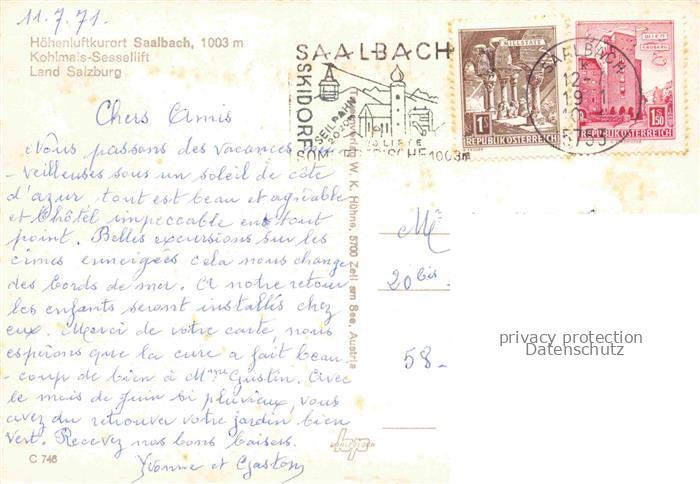 11.7.71.
Höhenluftkurort Saalbach, 1003 m
Kohlmais-Sessellift
Land Salzburg
Chers Amis
Nous passons des vacances mer
-veilleuses sous un soleil de côte
d'azur, tout est beau et agréable
et l'hôtel impeccable en tout
point. Belles excursions sur les
cimes enneigées cela nous change
des bords de mer. A notre retour
les enfants seront installés chez
eux. Merci de votre carte, nous
espérons que la cure a fait beau
-coup de bien à Mme Gustin. Avec
le mois de Juin si pluvieux, vous
avez du retrouver votre jardin bien
vert. Recevez nos bons baisers.
Yvonne et Gaston
C 746
SAALBACH
SKIDORF
SEILBAHN
1003m
MILLSTATT
1S
REPUBLIK ÖSTERREICH
WIEN
ERDBERG
1.50
REPUBLIK ÖSTERREICH
SAALBACH
W. K. Höhne, 5700 Zell am See, Austria
M
20 bis.
58-
privacy protection
Datenschutz